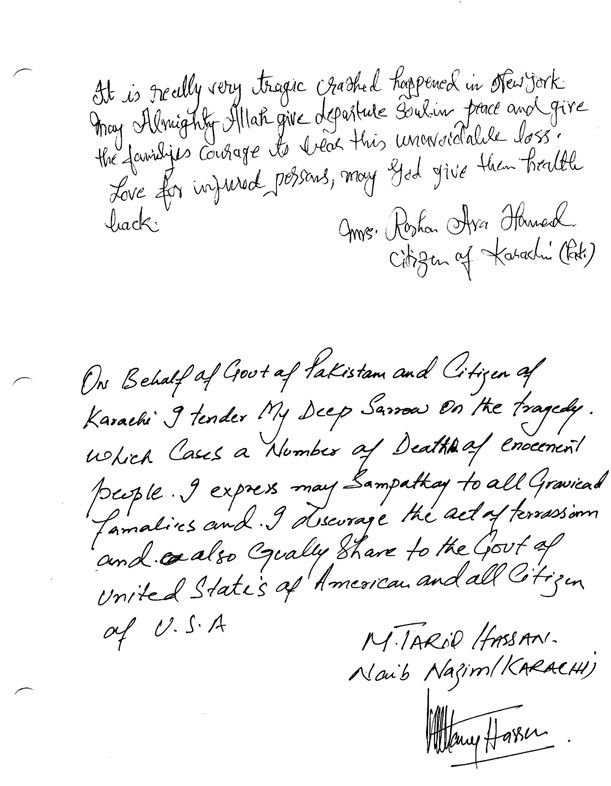 It is really very tragic crashed happened in New York.
May Almighty Allah give departure soul in peace and give
the families courage to bear this unavoidable loss.
Love for injured persons, may God give them health
back.
Mrs. Roshan Ara Hameed
Citizen of Karachi (Pak.)
On Behalf of Govt of Pakistan and Citizen of
Karachi I tender My Deep Sarrow on the tragedy.
which Cases a Number of Death of enocenent
people. I express may Sampathay to all Graviead
famalies and. I discurage the act of terrassiom
and also Equally Share to the Govt of
United State's of American and all Citizen
of U.S.A
M. TARIQ HASSAN.
Naib Nazim (KARACHI)
Hassan